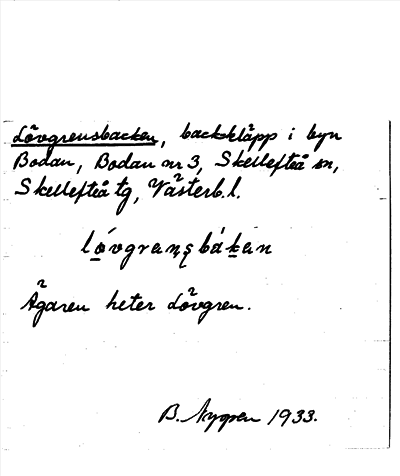 Lövgrensbacken, backkläpp i byn
Bodan, Bodan nr 3, Skellefteå sn,
Skellefteå tg, Västerb. l.
lövgrensbákén
Ägaren heter Lövgren.
B. Nygren 1933.